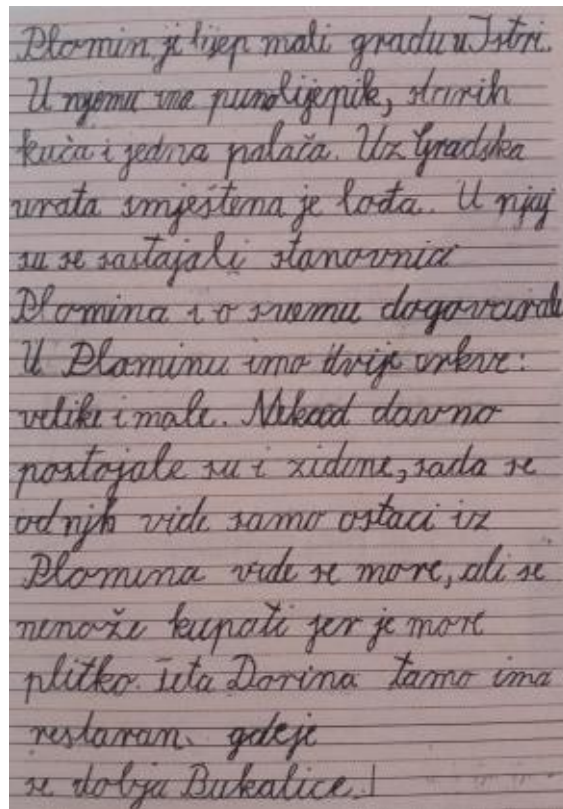 Plomin je lijep mali gradu u Istri.
U njemu ima puno lijepik, starih
kuća i jedna palača. Uz Gradska
vrata smještena je lođa. U njoj
su se sastajali stanovnici
Plomina i o svemu dogovarali
U Plominu imo dvije crkve:
velike i male. Nekad davno
postojale su i zidine, sada se
od njih vide samo ostaci iz
Plomina vide se more, ali se
nenože kupati jer je more
plitko. Teta Dorina tamo ima
restaran gdeje
se dobja Bukalice.